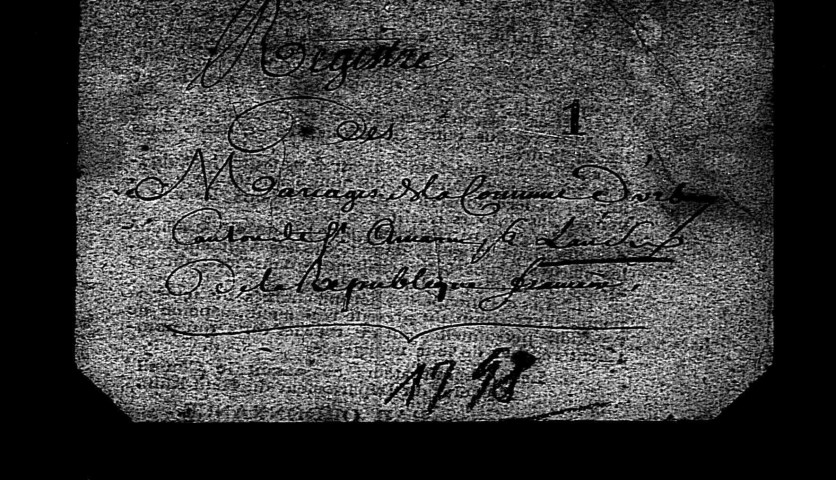 Registre
Des 1
Mariages de la Commune D'
Canton de St. Amarin, l'an
De la Republique francaise.
1798